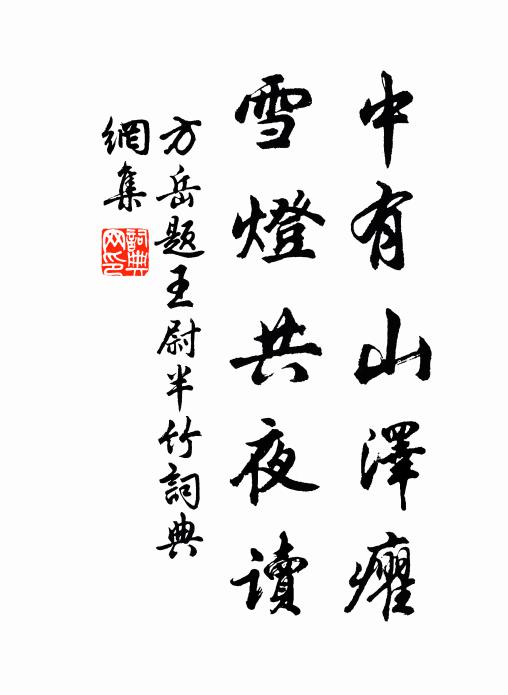 中有山澤癯
雪燈共夜讀
方岳题王尉半竹詞典
網集
詞典
网印